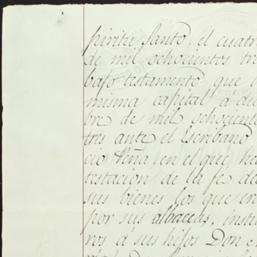 piritu Santo, el cuatr
de mil ochocientos tre
bajo testamento que o
misma capital á die
bre de mil ochocient
tres ante el Escribano
cio Peña, en el que ha
testacion de la fe de
sus bienes los que in
por sus albaceas, insti
ros á sus hijos Don